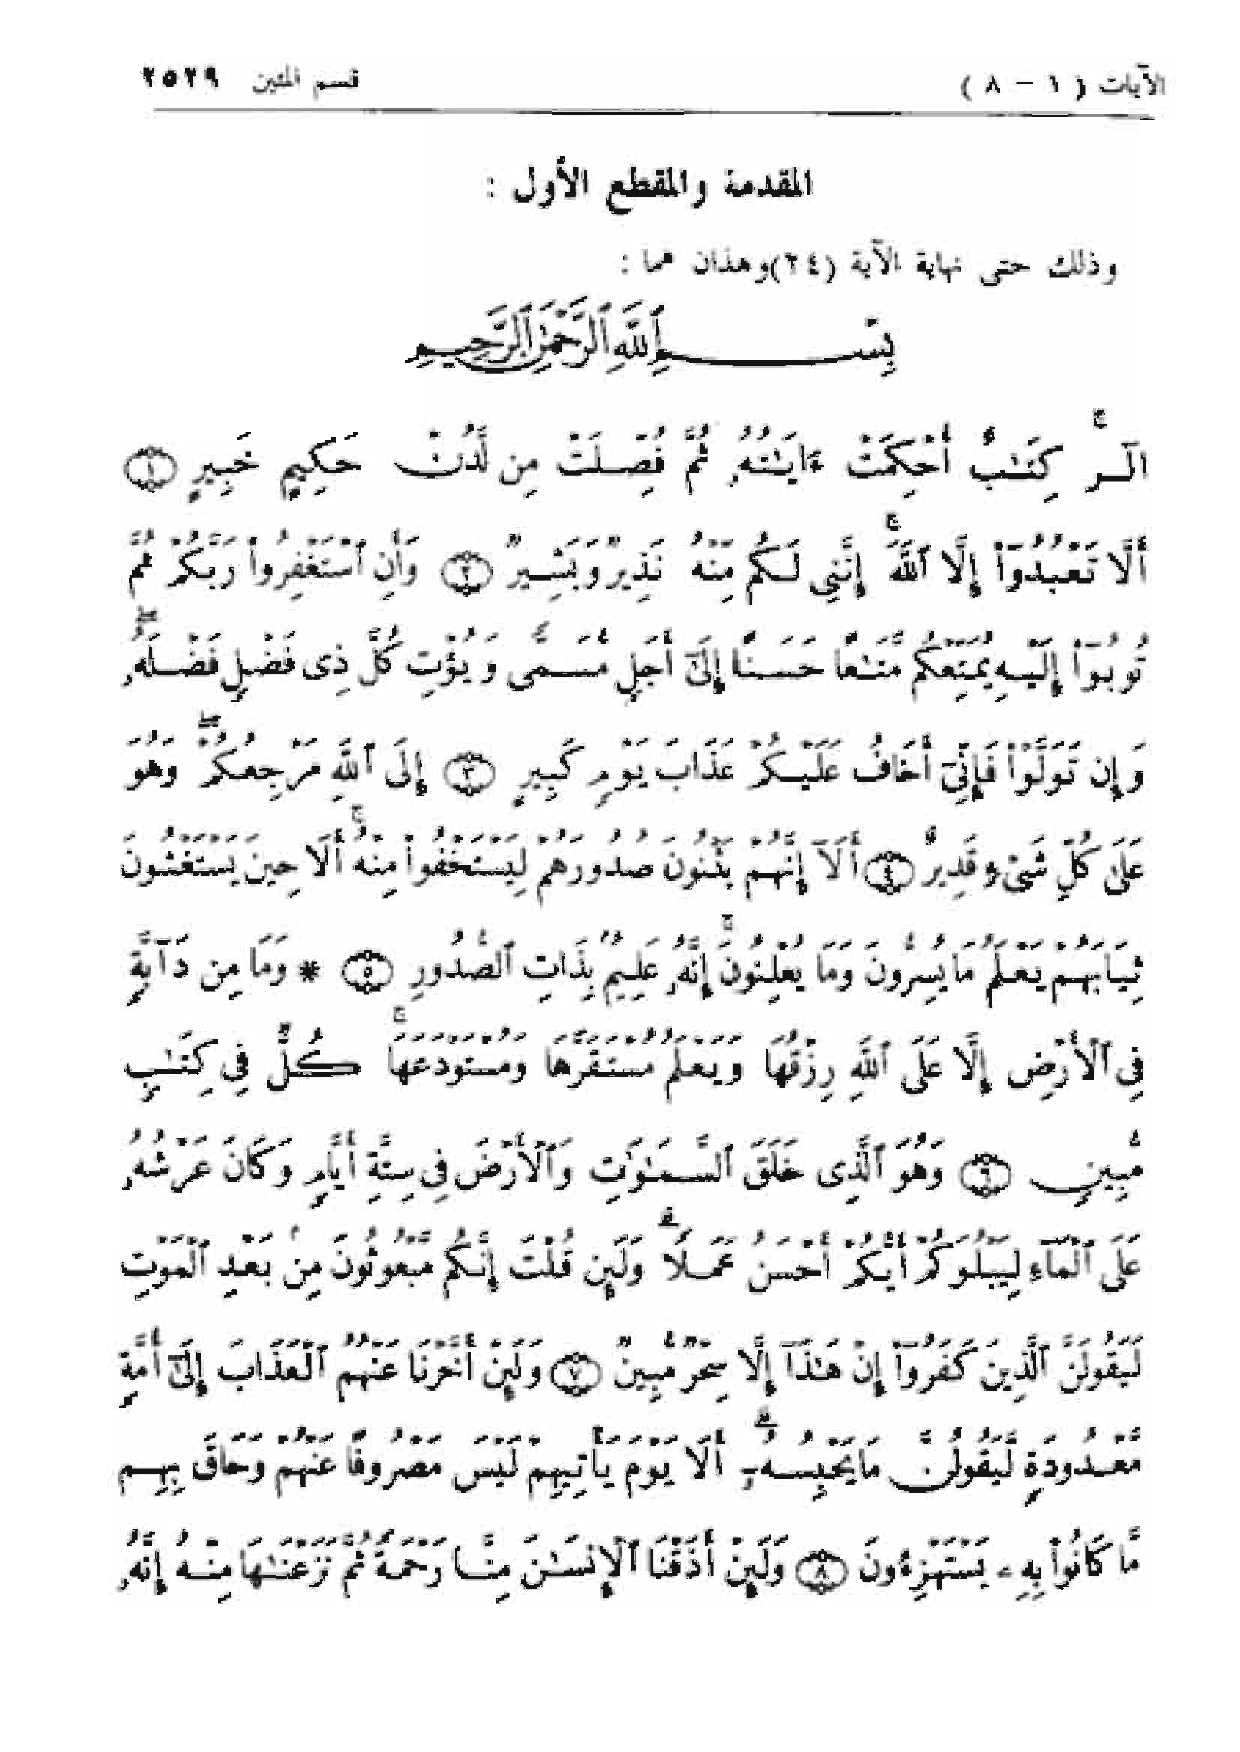 الآيات ( ١ – ٨ ) قسم المئين ٢٥٢٩
المقدمة والمقطع الأول :
وذلك حتى نهاية الآية (٢٤) وهذان هما :
بِسْمِ ٱللَّهِ ٱلرَّحْمَٰنِ ٱلرَّحِيمِ
الٓر ۚ كِتَٰبٌ أُحْكِمَتْ ءَايَٰتُهُۥ ثُمَّ فُصِّلَتْ مِن لَّدُنْ حَكِيمٍ خَبِيرٍ ١
أَلَّا تَعْبُدُوٓا۟ إِلَّا ٱللَّهَ ۚ إِنَّنِى لَكُم مِّنْهُ نَذِيرٌ وَبَشِيرٌ ٢ وَأَنِ ٱسْتَغْفِرُوا۟ رَبَّكُمْ ثُمَّ
تُوبُوٓا۟ إِلَيْهِ يُمَتِّعْكُم مَّتَٰعًا حَسَنًا إِلَىٰٓ أَجَلٍ مُّسَمًّى وَيُؤْتِ كُلَّ ذِى فَضْلٍ فَضْلَهُۥ ۖ
وَإِن تَوَلَّوْا۟ فَإِنِّىٓ أَخَافُ عَلَيْكُمْ عَذَابَ يَوْمٍ كَبِيرٍ ٣ إِلَى ٱللَّهِ مَرْجِعُكُمْ ۖ وَهُوَ
عَلَىٰ كُلِّ شَىْءٍ قَدِيرٌ ٤ أَلَآ إِنَّهُمْ يَثْنُونَ صُدُورَهُمْ لِيَسْتَخْفُوا۟ مِنْهُ ۚ أَلَا حِينَ يَسْتَغْشُونَ
ثِيَابَهُمْ يَعْلَمُ مَا يُسِرُّونَ وَمَا يُعْلِنُونَ ۚ إِنَّهُۥ عَلِيمٌۢ بِذَاتِ ٱلصُّدُورِ ٥ * وَمَا مِن دَآبَّةٍ
فِى ٱلْأَرْضِ إِلَّا عَلَى ٱللَّهِ رِزْقُهَا وَيَعْلَمُ مُسْتَقَرَّهَا وَمُسْتَوْدَعَهَا ۚ كُلٌّ فِى كِتَٰبٍ
مُّبِينٍ ٦ وَهُوَ ٱلَّذِى خَلَقَ ٱلسَّمَٰوَٰتِ وَٱلْأَرْضَ فِى سِتَّةِ أَيَّامٍ وَكَانَ عَرْشُهُۥ
عَلَى ٱلْمَآءِ لِيَبْلُوَكُمْ أَيُّكُمْ أَحْسَنُ عَمَلًا ۗ وَلَئِن قُلْتَ إِنَّكُم مَّبْعُوثُونَ مِنۢ بَعْدِ ٱلْمَوْتِ
لَيَقُولَنَّ ٱلَّذِينَ كَفَرُوٓا۟ إِنْ هَٰذَآ إِلَّا سِحْرٌ مُّبِينٌ ٧ وَلَئِنْ أَخَّرْنَا عَنْهُمُ ٱلْعَذَابَ إِلَىٰٓ أُمَّةٍ
مَّعْدُودَةٍ لَّيَقُولُنَّ مَا يَحْبِسُهُۥٓ ۗ أَلَا يَوْمَ يَأْتِيهِمْ لَيْسَ مَصْرُوفًا عَنْهُمْ وَحَاقَ بِهِم
مَّا كَانُوا۟ بِهِۦ يَسْتَهْزِءُونَ ٨ وَلَئِنْ أَذَقْنَا ٱلْإِنسَٰنَ مِنَّا رَحْمَةً ثُمَّ نَزَعْنَٰهَا مِنْهُ إِنَّهُۥ